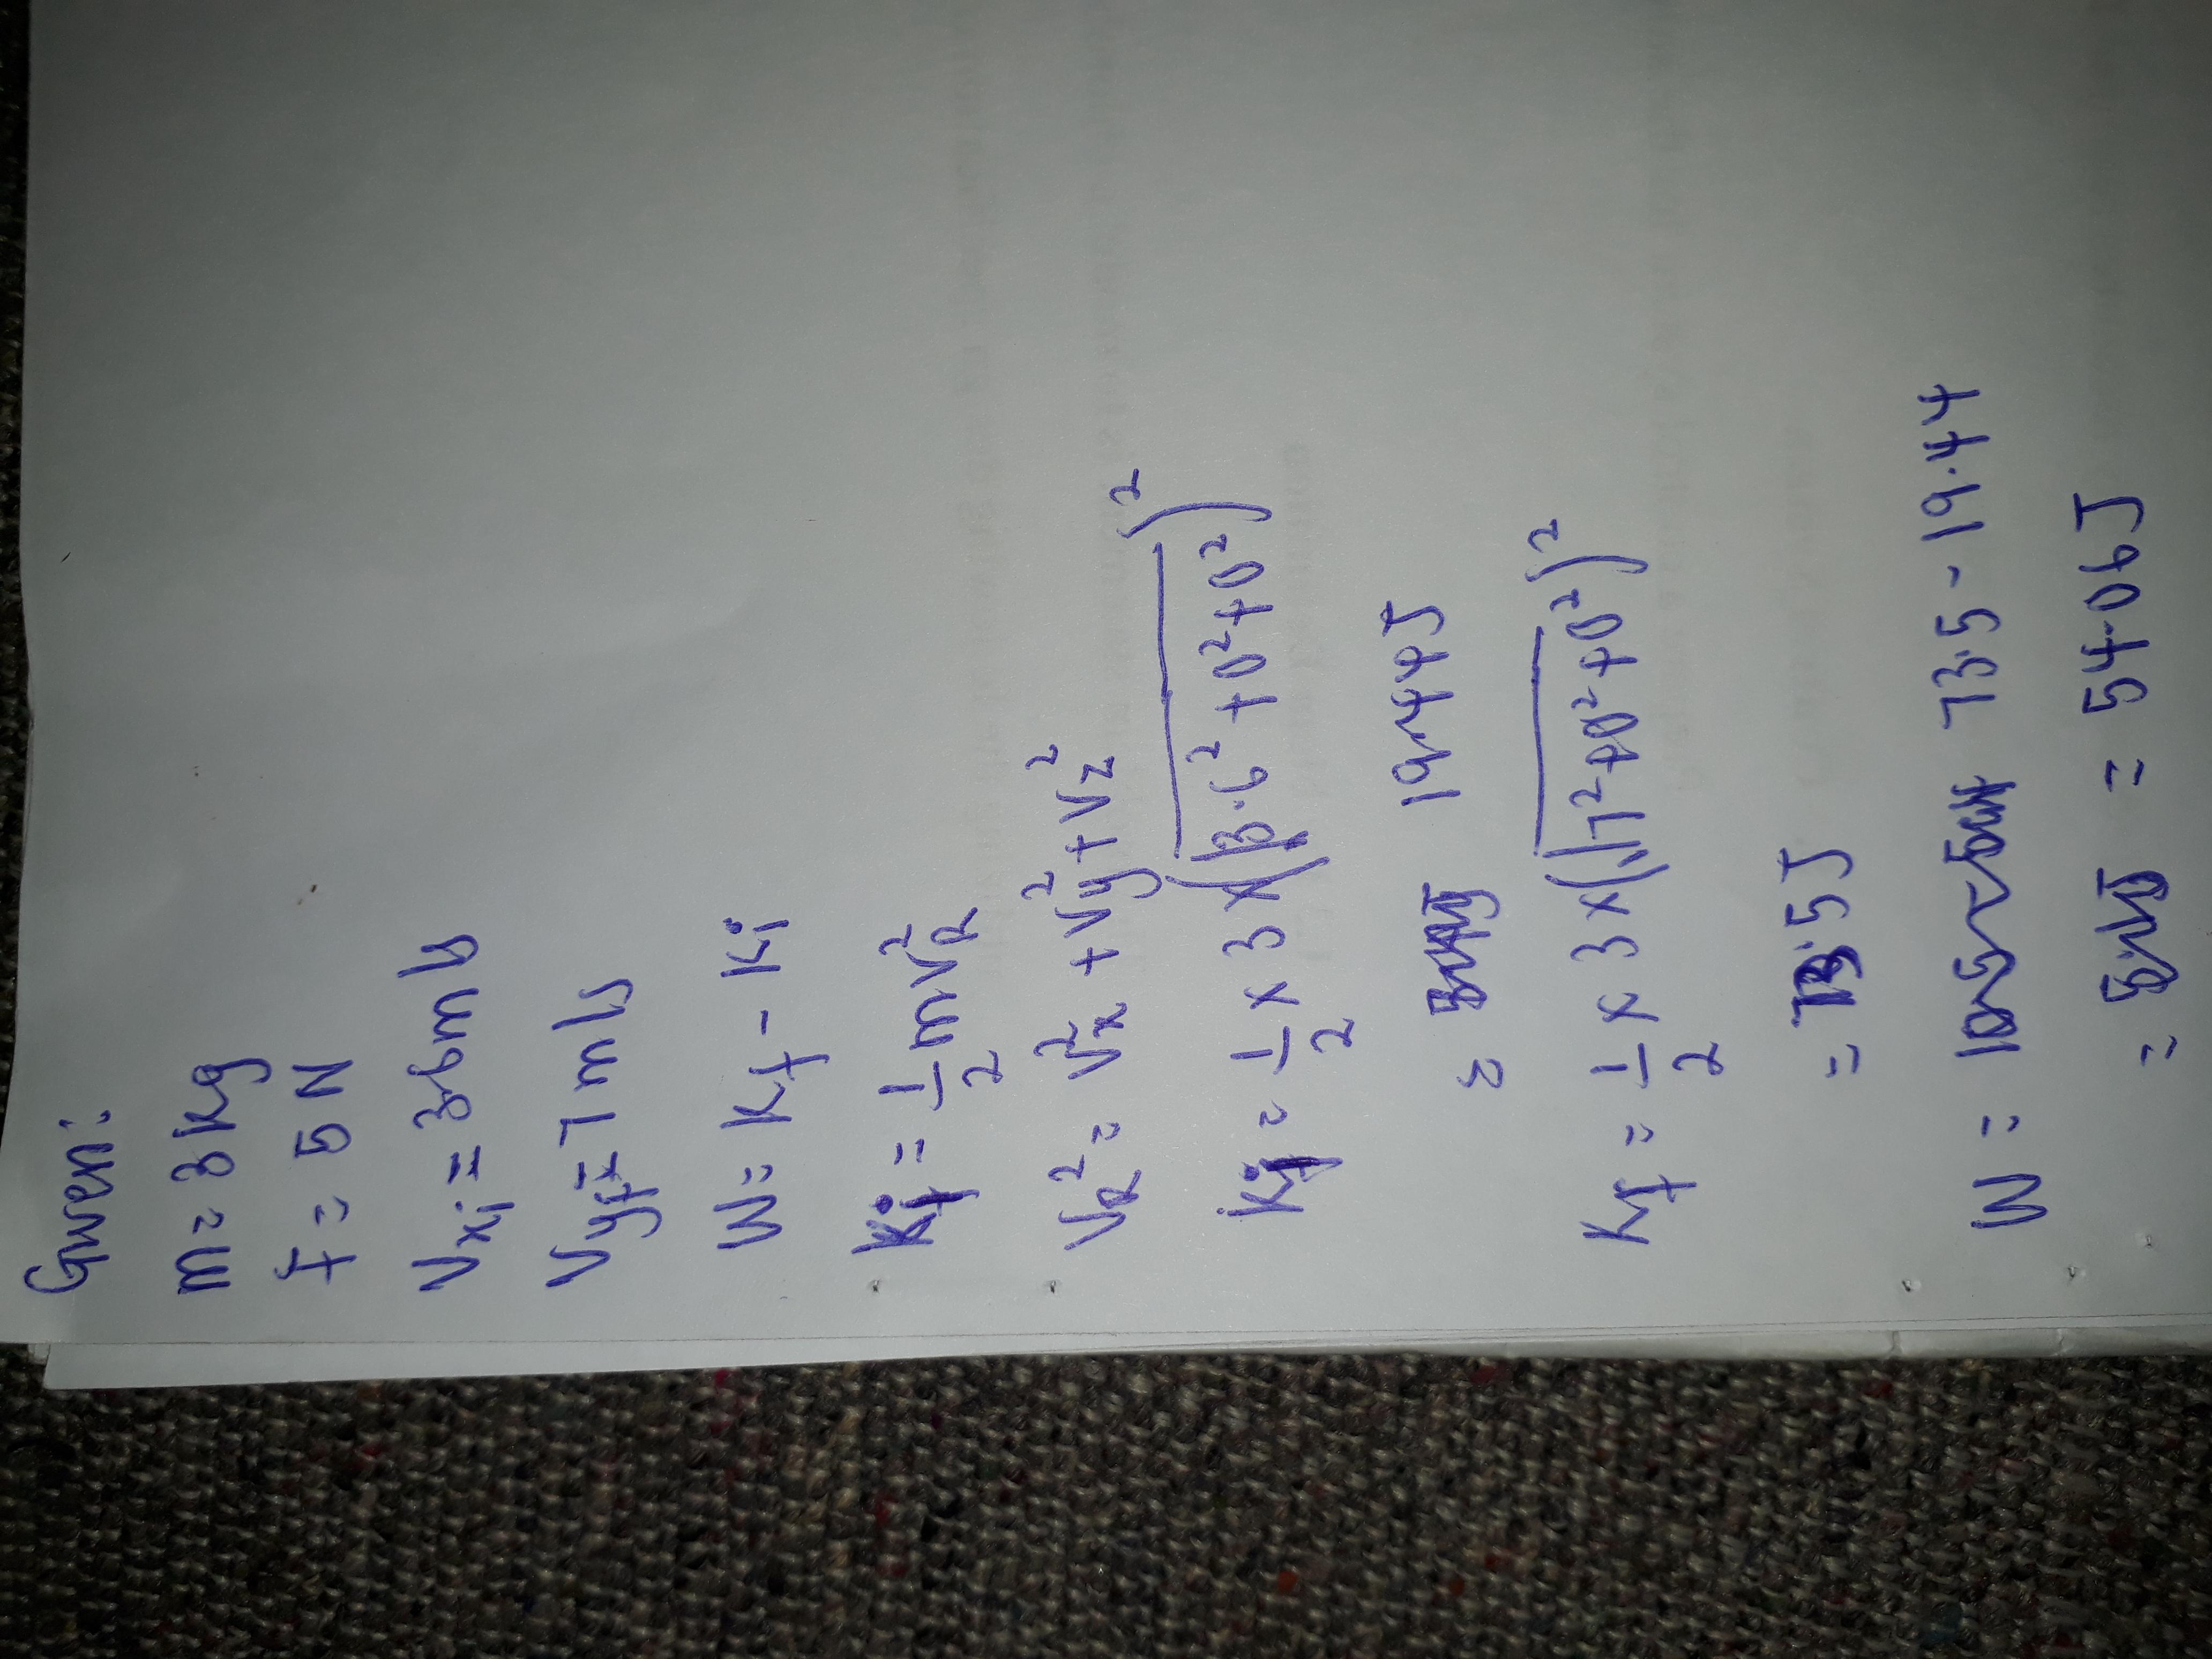 Given:
m = 3 kg
F = 5 N
Vxi = 3.6 m/s
Vyf = 7 m/s
W = Kf - Ki
Ki = 1/2 mVR²
VR² = Vx² + Vy² + Vz²
Ki = 1/2 x 3 x (√3.6² + 0² + 0²)²
= 19.44 J
Kf = 1/2 x 3 x (√7² + 0² + 0²)²
= 73.5 J
W = 73.5 - 19.44
= = 54.06 J